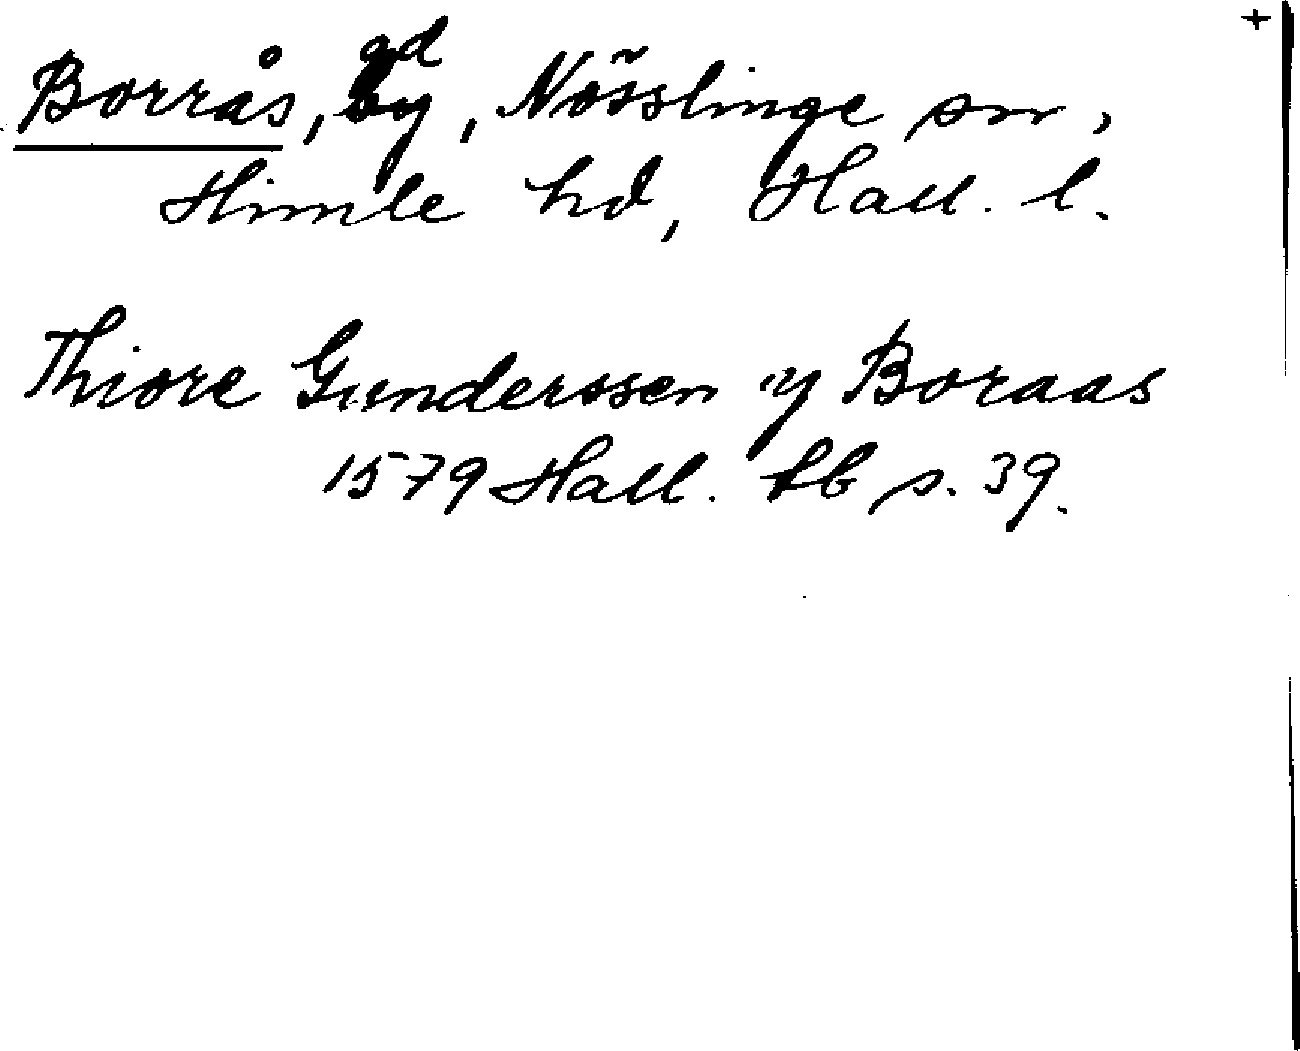 +
Borrås, gd, Nösslinge sn,
Himle hd, Hall. l.
Thiore Gunderssen y Boraas
1579 Hall. lb s. 39.